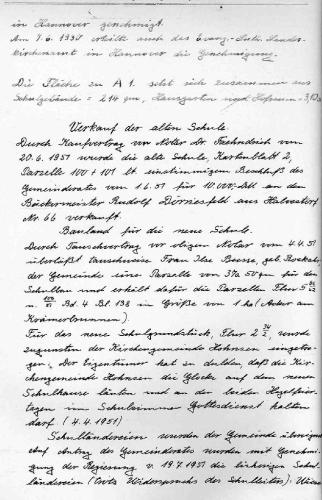 in Hannover genehmigt.
Am 7.6. 1951 erteilte auch das Evang.-Luth. Landes-
kirchenamt in Hannover die Genehmigung.
Die Fläche zu A 1. setzt sich zusammen aus
Schulgebäude = 2,14 qm, Hausgarten und Hofraum =
Verkauf der alten Schule.
Durch Kaufvertrag vor Notar Dr. vom
20.6. 1951 wurde die alte Schule, Kartenblatt 2,
Parzelle 100 + 101 lt. einstimmigem Beschluß des
Gemeinderates vom 1.6.51 für 10 000,- an den
Bäckermeister Rudolf Dörriesfeld aus Halvestorf
Nr. 66 verkauft.
Bauland für die neue Schule.
Durch Tauschvertrag vor obigem Notar vom 4.4.51
überläßt tauschweise Frau Ilse Beese, geb.
der Gemeinde eine Parzelle von 37a 50 qm für den
Schulbau und erhält dafür die Parzellen Flur 5
Bd. 4 Bl. 138 in Größe von 1 ha (Acker am
Krämerbrunnen).
Für das neue Schulgrundstück, Flur 2, wurde
zugunsten der Kirchengemeinde Hohnsen eingetra-
gen. Der Eigentümer hat zu dulden, daß die Kir-
chengemeinde Hohnsen die Glocke auf dem neuen
Schulhause läuten und an den beiden Hagelfeier-
tagen im Schulzimmer Gottesdienst halten
darf. (4.4.1951)
Schulländereien wurden der Gemeinde
Auf Antrag des Gemeinderates wurden mit Genehmi-
gung der Regierung v. 19.7.1951 die bisherigen Schul-
ländereien (trotz Widerspruchs des Schulleiters),